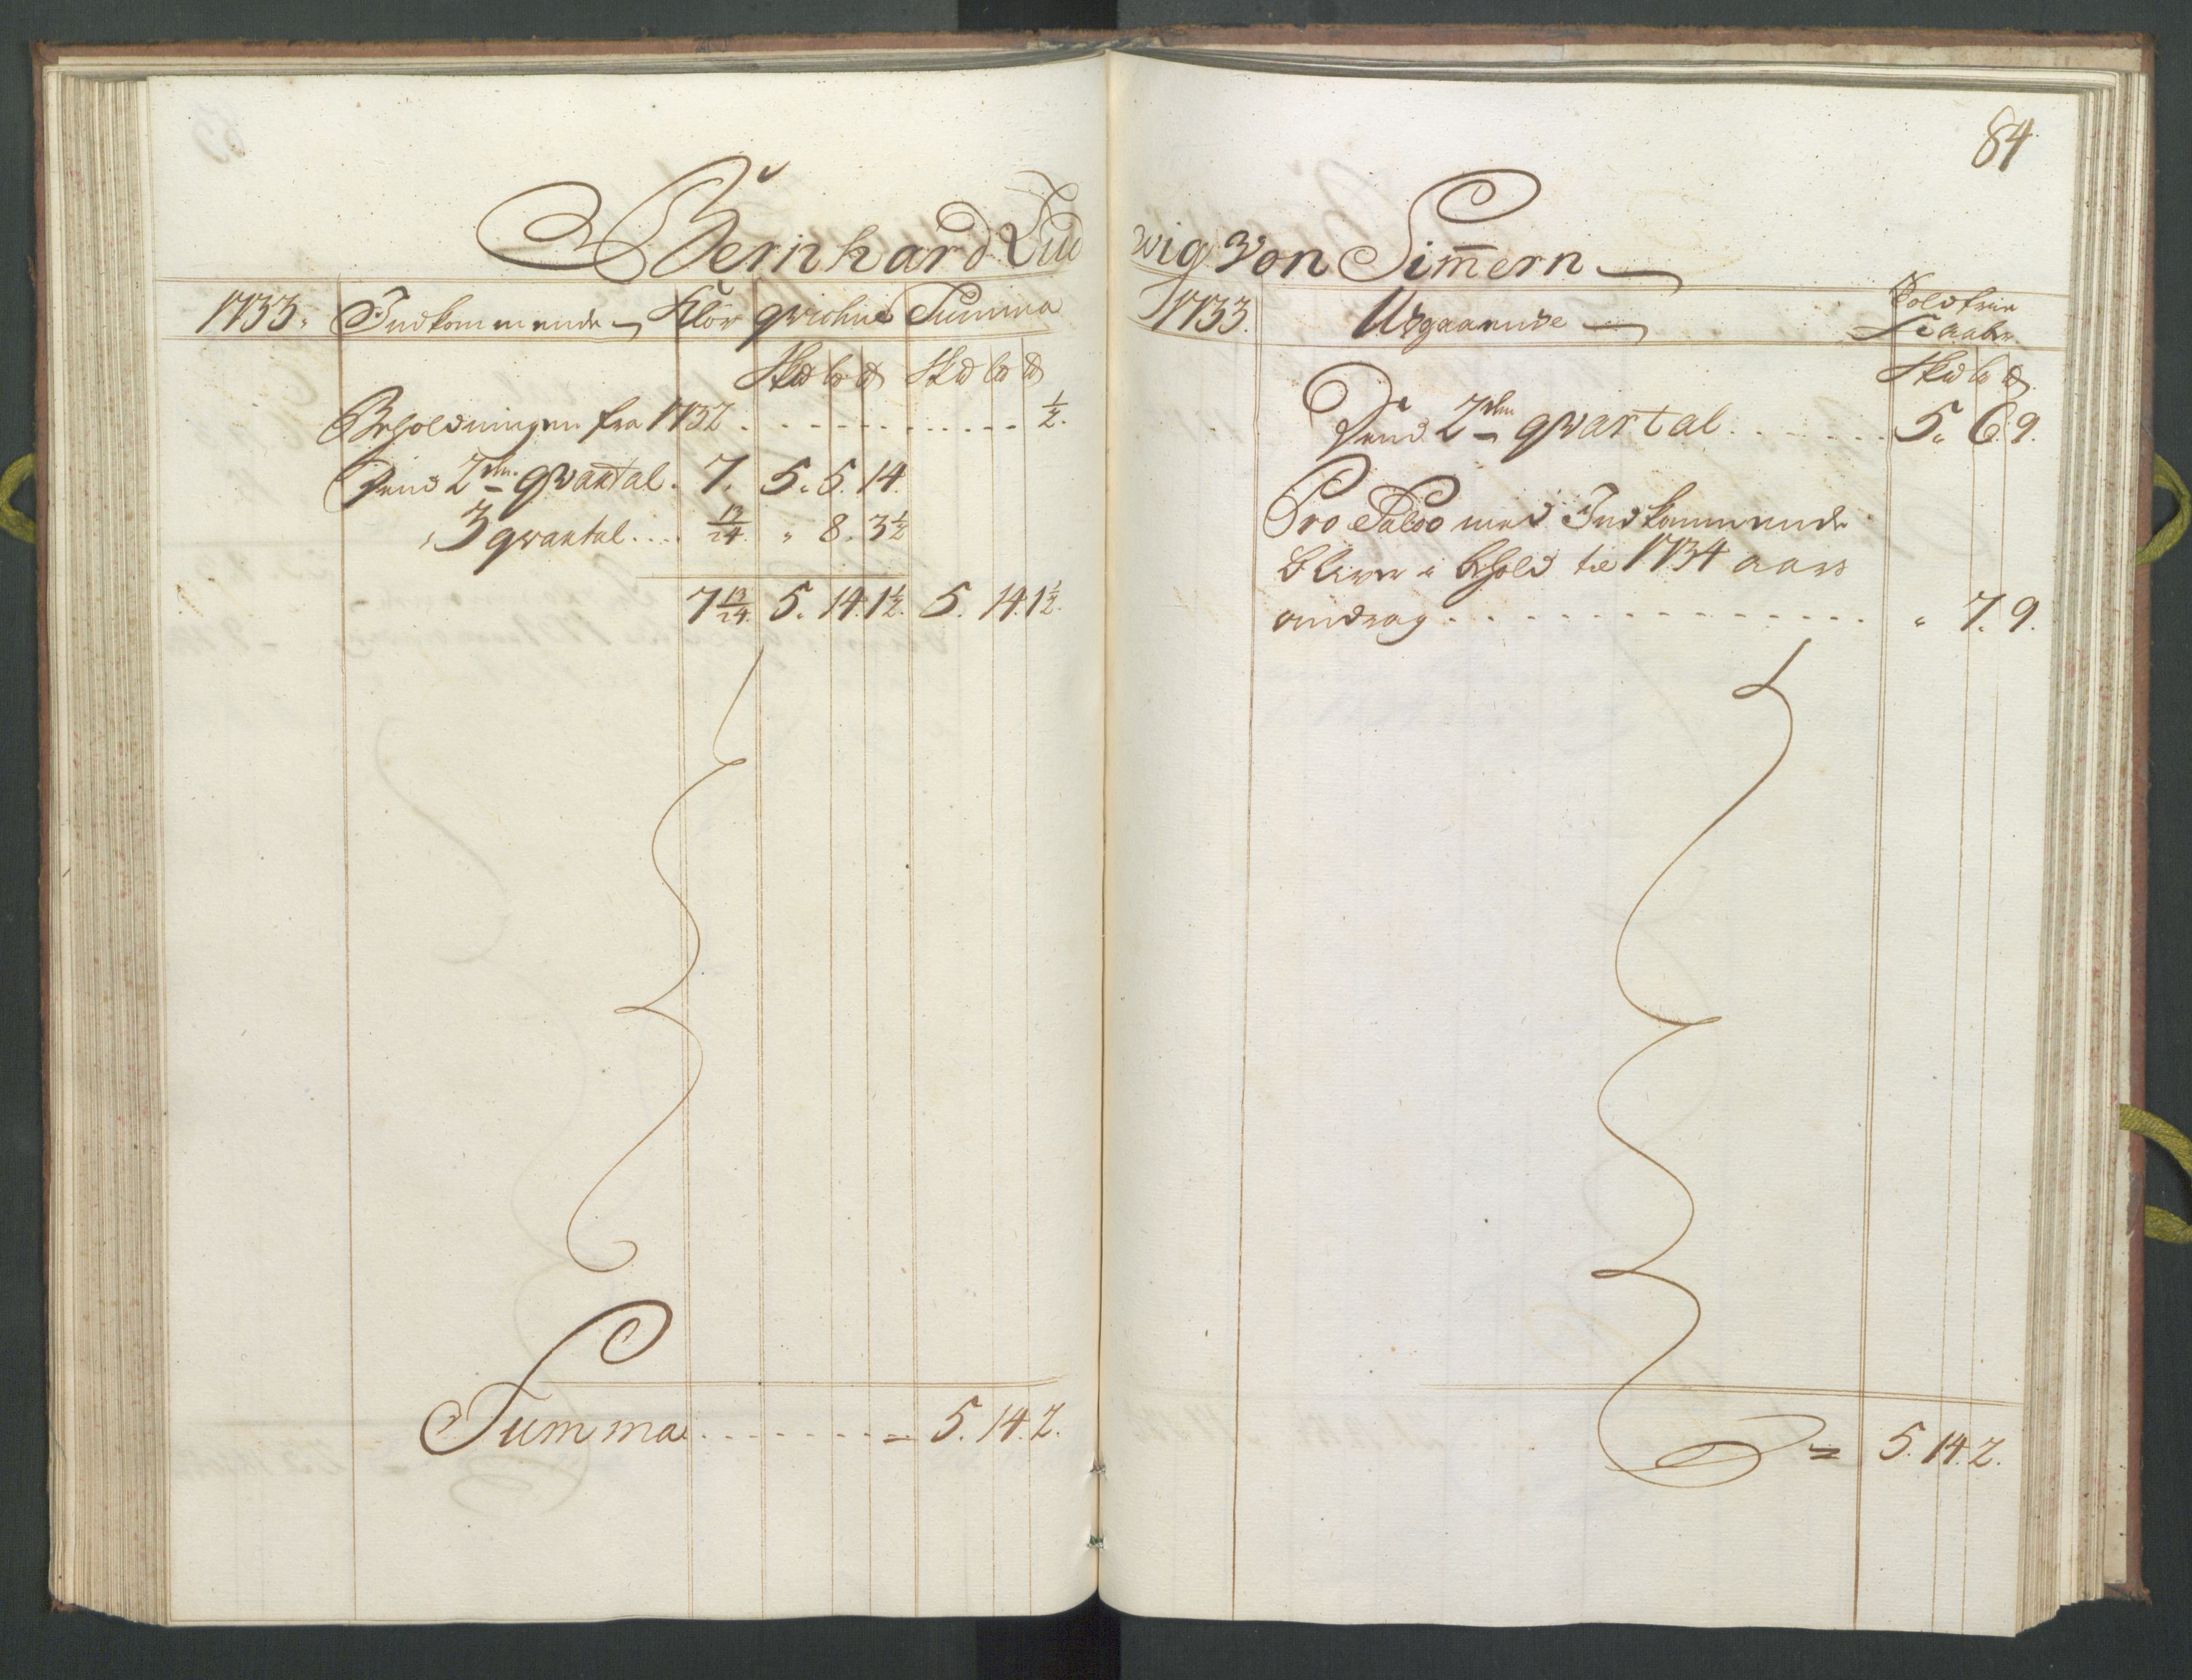 84
Bernhard Ludwig von Sim̄ern
1733. Indkommende Klöv qviohne Summa
Skd lb ₰ Skd lb ₰
Beholdningen fra 1732 . . . . . . . . . . . . ½.
Dend 2den qvartal. 7. 5. 5. 14.
" 3 qvartal .... 13/24. " 8. 3½
7 13/24. 5. 14. 1½. 5. 14. 1½.
Summa . . . . . . . . = 5. 14. 2.
1733. Udgaaende
Skd lb ₰.
Dend 2den qvartal . . . . . . . 5. 6. 9.
Pro Saldo med Indkommende
bliver i behold til 1734 aars
andrag . . . . . . . . . . . . . . . " 7. 9.
= 5. 14. 2.